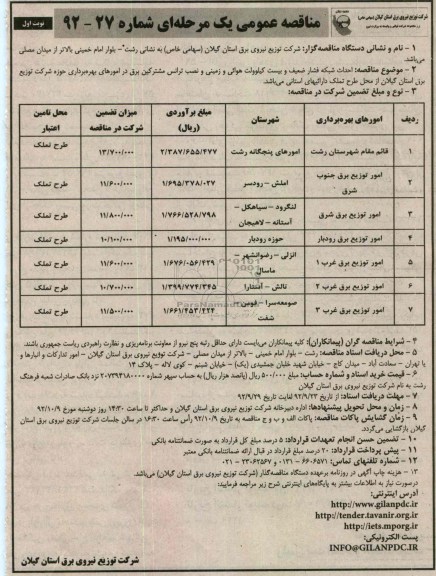 شرکت توزیع نیروی برق استان گیلان (سهامی خاص)
مناقصه عمومی یک مرحله‌ای شماره ۲۷ - ۹۲
نوبت اول
۱ - نام و نشانی دستگاه مناقصه گزار: شرکت توزیع نیروی برق استان گیلان (سهامی خاص) به نشانی رشت - بلوار امام خمینی بالاتر از میدان مصلی
می‌باشد.
۲ - موضوع مناقصه: احداث شبکه فشار ضعیف و بیست کیلوولت هوائی و زمینی و نصب ترانس مشترکین برق در امورهای بهره‌برداری حوزه شرکت توزیع
برق استان گیلان از محل طرح تملک دارائیهای استانی می‌باشد.
۳ - نوع و مبلغ تضمین شرکت در مناقصه:
ردیف امورهای بهره‌برداری شهرستان مبلغ برآوردی (ریال) میزان تضمین شرکت در مناقصه محل تامین اعتبار
۱ قائم مقام شهرستان رشت امورهای پنجگانه رشت ۲/۳۸۷/۶۵۵/۴۷۷ ۱۳/۷۰۰/۰۰۰ طرح تملک
۲ امور توزیع برق جنوب شرق املش - رودسر ۱/۶۹۵/۳۷۸/۰۲۷ ۱۱/۶۰۰/۰۰۰ طرح تملک
۳ امور توزیع برق شرق لنگرود - سیاهکل - آستانه - لاهیجان ۱/۷۶۶/۵۲۸/۷۹۸ ۱۱/۸۰۰/۰۰۰ طرح تملک
۴ امور توزیع برق رودبار حوزه رودبار ۱/۱۹۵/۰۰۰/۰۰۰ ۱۰/۱۰۰/۰۰۰ طرح تملک
۵ امور توزیع برق غرب ۱ انزلی - رضوانشهر - ماسال ۱/۶۷۶/۰۵۶/۴۲۹ ۱۱/۶۰۰/۰۰۰ طرح تملک
۶ امور توزیع برق غرب ۲ تالش - آستارا ۱/۳۹۹/۷۷۴/۳۴۵ ۱۰/۷۰۰/۰۰۰ طرح تملک
۷ امور توزیع برق غرب ۳ صومعه‌سرا - فومن - شفت ۱/۶۶۱/۴۵۳/۴۲۴ ۱۱/۵۰۰/۰۰۰ طرح تملک
۴ - شرایط مناقصه گران (پیمانکاران): کلیه پیمانکاران می‌بایست دارای حداقل رتبه پنج نیرو از معاونت برنامه‌ریزی و نظارت راهبردی ریاست جمهوری باشند.
۵ - محل دریافت اسناد مناقصه: رشت - بلوار امام خمینی - بالاتر از میدان مصلی - شرکت توزیع نیروی برق استان گیلان - امور تدارکات و انبارها و
یا تهران - سعادت آباد - میدان کاج - خیابان شهید خلیان جمشیدی (یک) - خیابان شبنم - کوی لاله - پلاک ۱۴
۶ - قیمت خرید اسناد و شماره حساب: مبلغ ۵۰۰/۰۰۰ ریال (پانصد هزار ریال) به حساب سپهر شماره ۲۰۷۳۹۴۱۸۰۰۰۰ نزد بانک صادرات شعبه فرهنگ
رشت به نام شرکت توزیع نیروی برق استان گیلان
۷ - مهلت دریافت اسناد: از تاریخ ۹۲/۹/۲۳ لغایت تاریخ ۹۲/۹/۲۹
۸ - زمان و محل تحویل پیشنهادها: اداره دبیرخانه شرکت توزیع نیروی برق استان گیلان و حداکثر تا ساعت ۱۴:۳۰ روز دوشنبه مورخ ۹۲/۱۰/۹
۹ - زمان گشایش پاکات مناقصه: پاکات الف و ب و ج مناقصه به تاریخ ۹۲/۱۰/۹ رأس ساعت ۱۶:۳۰ در سالن جلسات شرکت توزیع نیروی برق استان
گیلان بازگشایی می‌گردد.
۱۰ - تضمین حسن انجام تعهدات قرارداد: ۵ درصد مبلغ کل قرارداد به صورت ضمانتنامه بانکی
۱۱ - پیش پرداخت قرارداد: ۲۰ درصد مبلغ قرارداد در قبال ارائه ضمانتنامه بانکی معتبر
۱۲ - شماره تلفنهای تماس: ۶۶۰۶۵۷۱ - ۰۱۳۱ و ۲۳۰۶۲۵۶۷ - ۰۲۱
۱۳ - هزینه چاپ آگهی در روزنامه برعهده دستگاه مناقصه‌گذار (شرکت توزیع نیروی برق استان گیلان) می‌باشد.
درصورت نیاز به اطلاعات بیشتر به پایگاه‌های اینترنتی شرح زیر مراجعه فرمایید:
آدرس اینترنتی:
http://www.gilanpdc.ir
http://tender.tavanir.org.ir
http://iets.mporg.ir
پست الکترونیکی:
INFO@GILANPDC.IR
شرکت توزیع نیروی برق استان گیلان